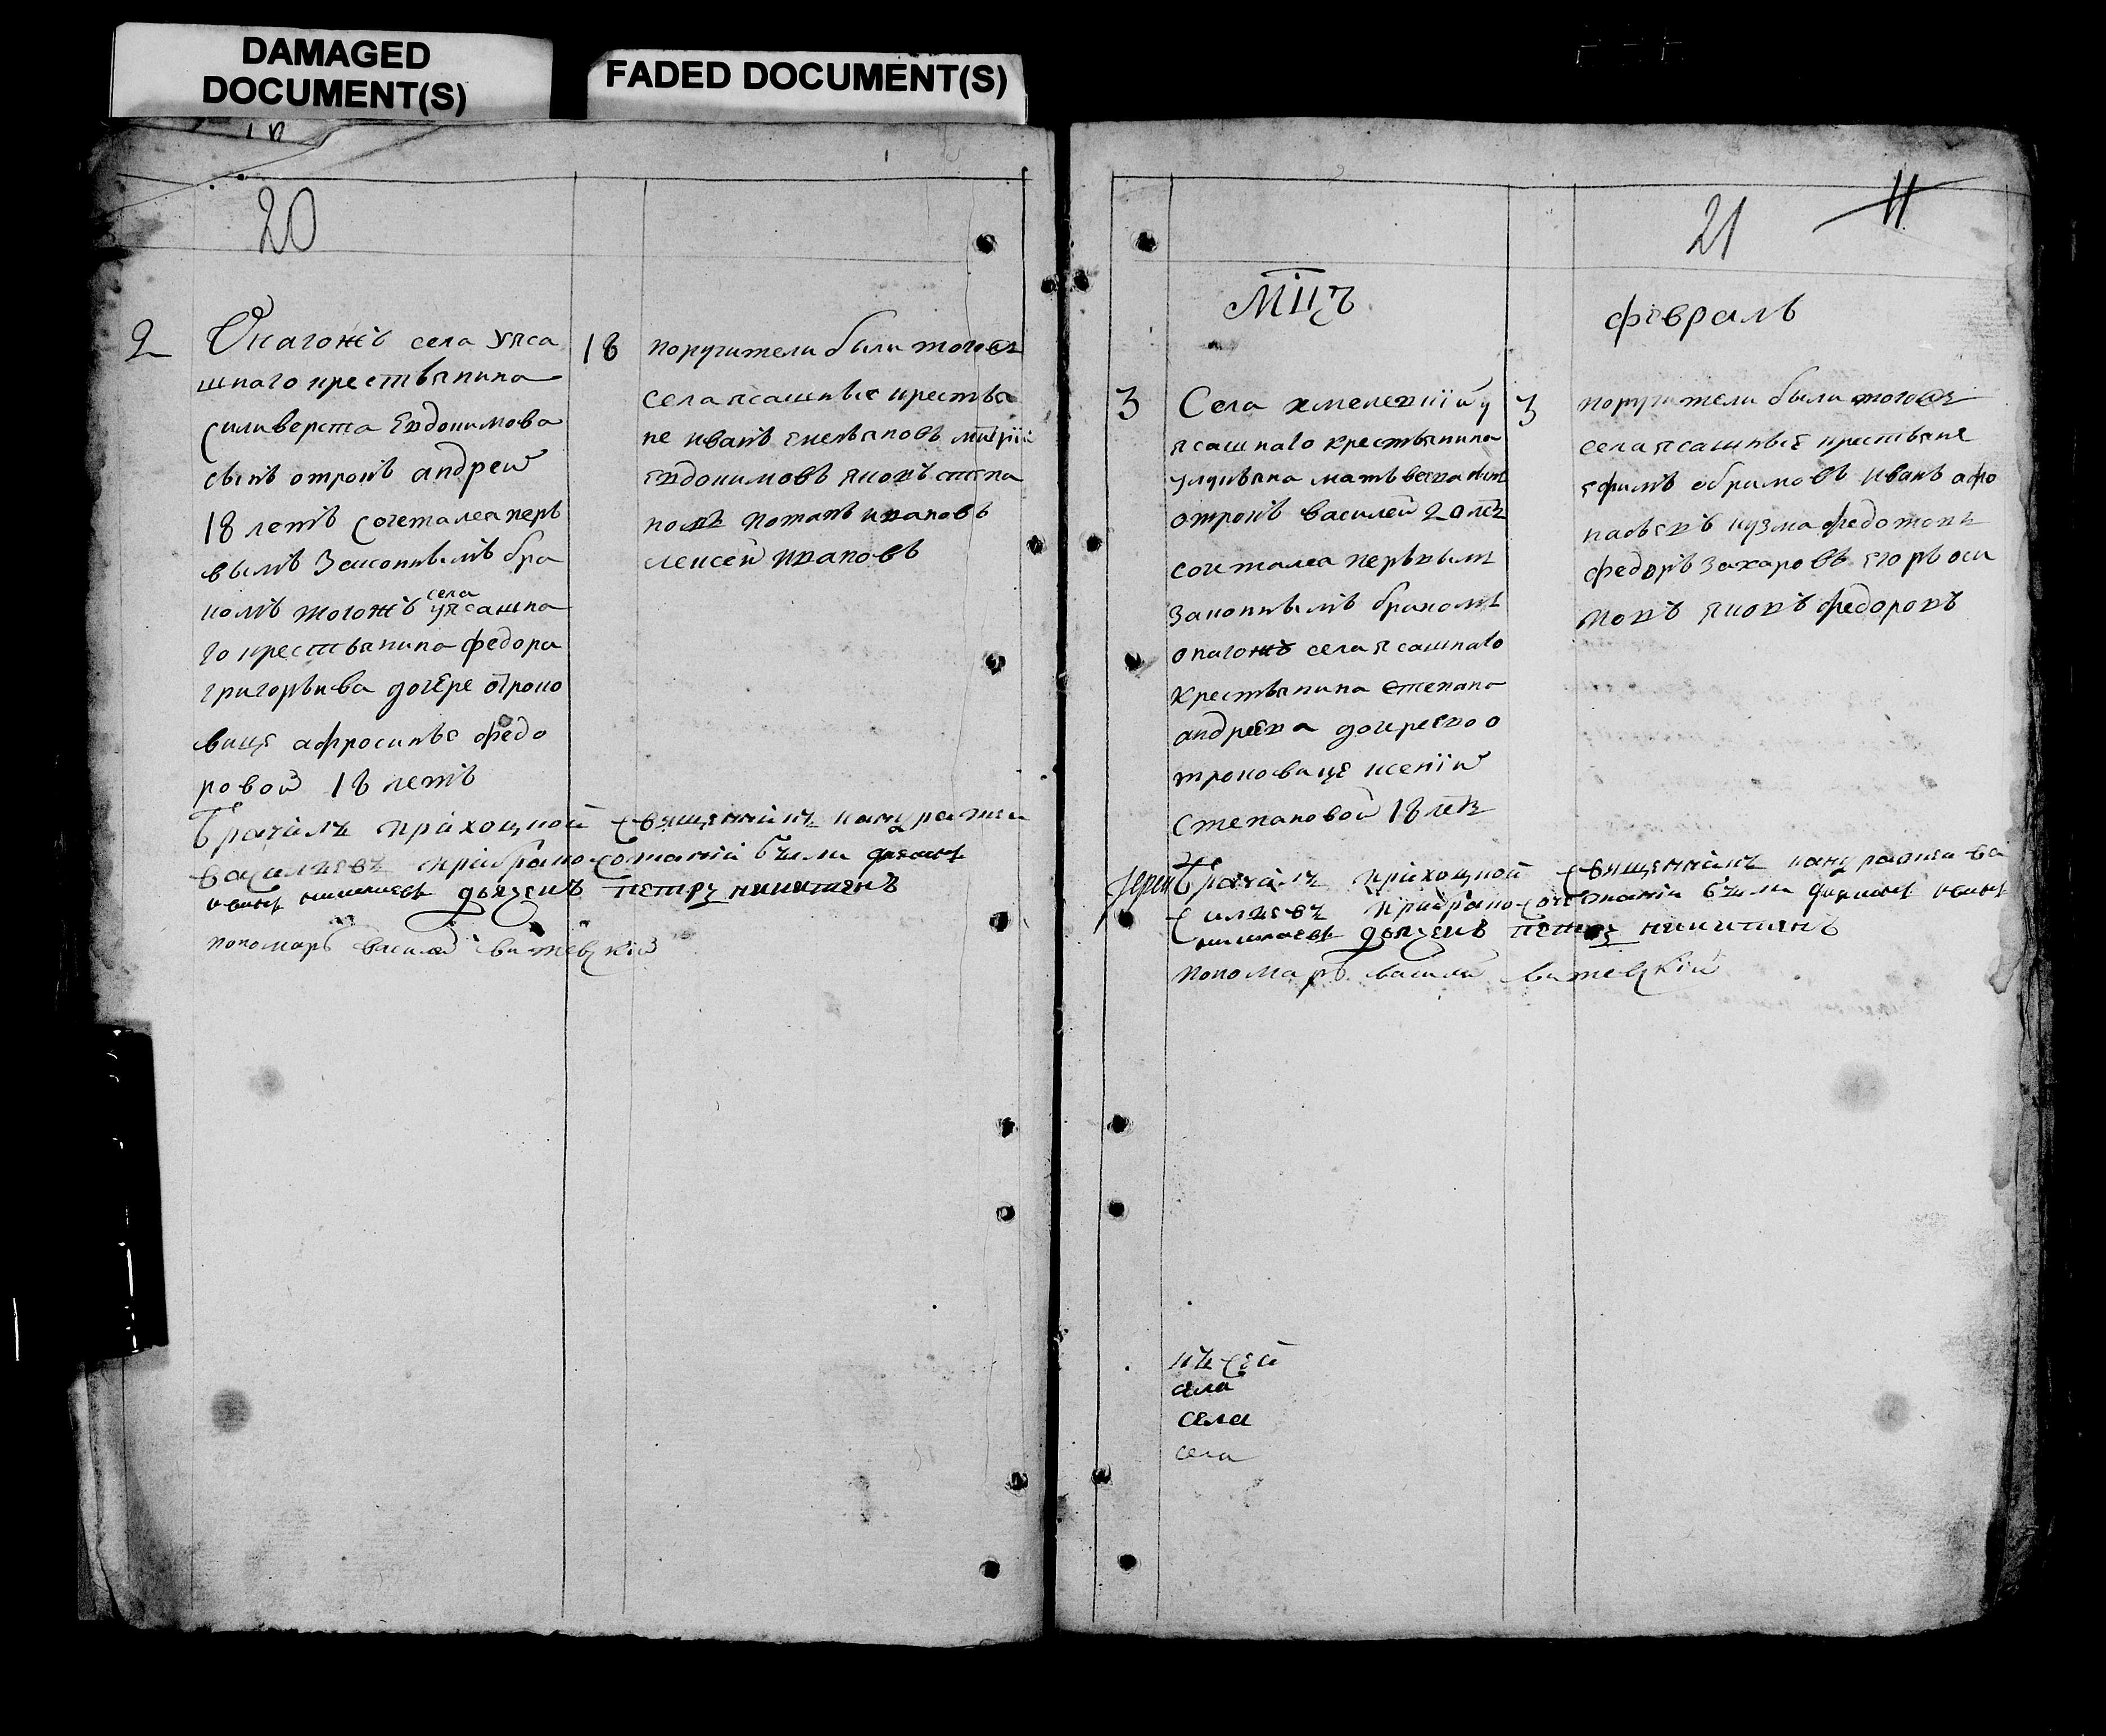 DAMAGED
DOCUMENT(S)
FADED DOCUMENT(S)
20
2
Онагожъ села уяса
шнаго крестьянина
Силиверста Евдокимова
сынъ отрокъ андрей
18 летъ сочетался перъ
вымъ Законнымъ бра
комъ тогожъ села уясашна
го крестьянина федора
григорьива дочере отроко
вице афросинье федо
ровой 18 летъ
18
поручители были тогожъ
села ясашные крестья
не иванъ емельяновъ митрий
евдокимовъ яковъ степа
новъ потапъ ивановъ
алексей ивановъ
Брачалъ приходной священникъ
василиевъ прибрако сочетании были дьяконъ
дьячекъ петръ никитинъ
пономарь василей витевский
21
11
Мцъ
февраль
3
Села хмелевки у
ясашнаго крестьянина
лукьяна матвеева сынъ
отрокъ василей 20 летъ
сочетался первымъ
законнымъ бракомъ
онагожъ села ясашнаго
крестьянина степана
андреева дочерею о
троковице ксении
степановой 18 летъ
3
поручители были тогожъ
села ясашные крестьяне
ефимъ абрамовъ иванъ афо
насьевъ кузма федотовъ
федоръ захаровъ егоръ оси
повъ яковъ федоровъ
Иереи Брачалъ приходной священникъ ва
силиевъ прибрако сочетании были дьяконъ
дьячекъ петръ никитинъ
пономарь василий витевский
къ сей
села
села
села